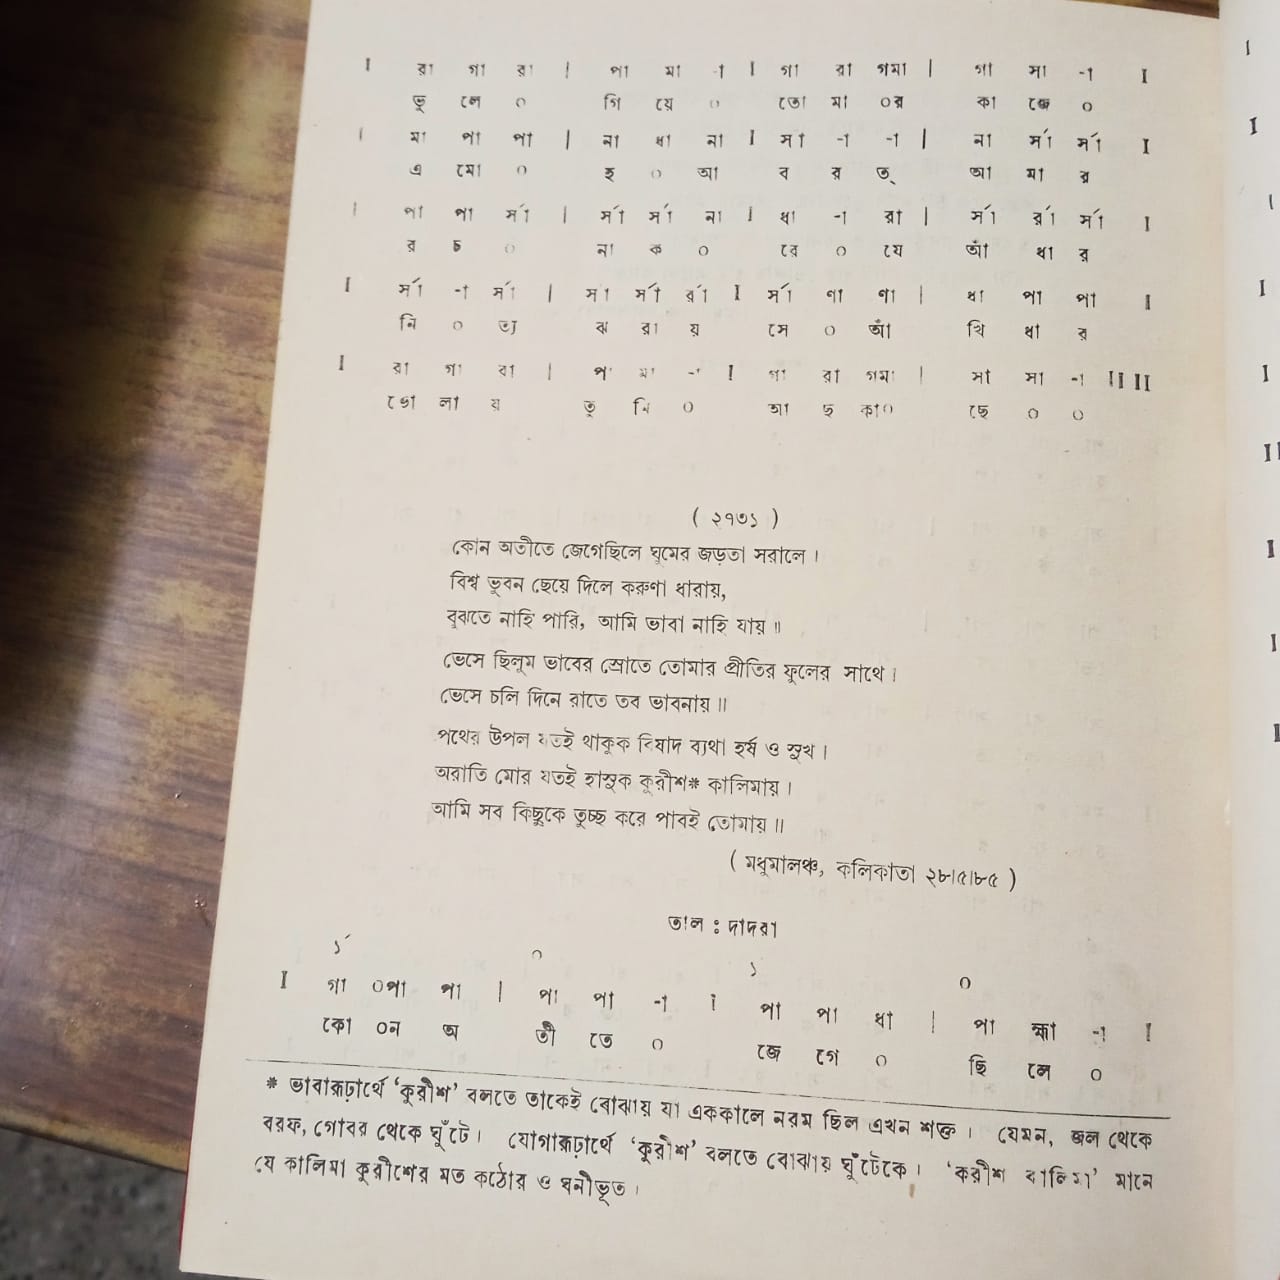 I রা গা রা | পা মা -া I গা রা গমা | গা মা -া I
ভু লে ০ গি য়ে ০ তো মা ০র কা ছে ০
I মা পা পা | না ধা না I র্সা -া -া | না র্সা র্সা I
এ মো ০ হ ০ আ ব র ত্ আ মা র
I পা পা র্সা | র্সা র্সা না I ধা -া রা | র্সা র্রা র্সা I
র চ ০ না ক ০ রে ০ যে আঁ ধা র
I র্সা -া র্সা | র্সা র্সা র্রা I র্সা ণা ণা | ধা পা পা I
নি ০ ত্য ঝ রা য় সে ০ আঁ খি ধা র
I রা গা রা | পা মা -া I গা রা গমা | মা মা -া II II
ভো লা য় তু মি ০ আ ছ কা০ ছে ০ ০
( ২৭৩১ )
কোন অতীতে জেগেছিলে ঘুমের জড়তা সরালে ।
বিশ্ব ভুবন ছেয়ে দিলে করুণা ধারায়,
বুঝতে নাহি পারি, আমি ভাবা নাহি যায় ॥
ভেসে ছিলুম ভাবের স্রোতে তোমার প্রীতির ফুলের সাথে ।
ভেসে চলি দিনে রাতে তব ভাবনায় ॥
পথের উপল যতই থাকুক বিষাদ ব্যথা হর্ষ ও সুখ ।
অরাতি মোর যতই হাসুক কুরীশ* কালিমায় ।
আমি সব কিছুকে তুচ্ছ করে পাবই তোমায় ॥
( মধুমালঞ্চ, কলিকাতা ২৮।৫।৮৫ )
তাল : দাদরা
১´ ০ ১ ০
I গা ০পা পা | পা পা -া I পা পা ধা | পা হ্মা -া I
কো ০ন অ তী তে ০ জে গে ০ ছি লে ০
* ভাবারূঢ়ার্থে ‘কুরীশ’ বলতে তাকেই বোঝায় যা এককালে নরম ছিল এখন শক্ত । যেমন, জল থেকে
বরফ, গোবর থেকে ঘুঁটে । যোগারূঢ়ার্থে ‘কুরীশ’ বলতে বোঝায় ঘুঁটেকে । ‘করীশ কালিমা’ মানে
যে কালিমা কুরীশের মত কঠোর ও ঘনীভূত ।